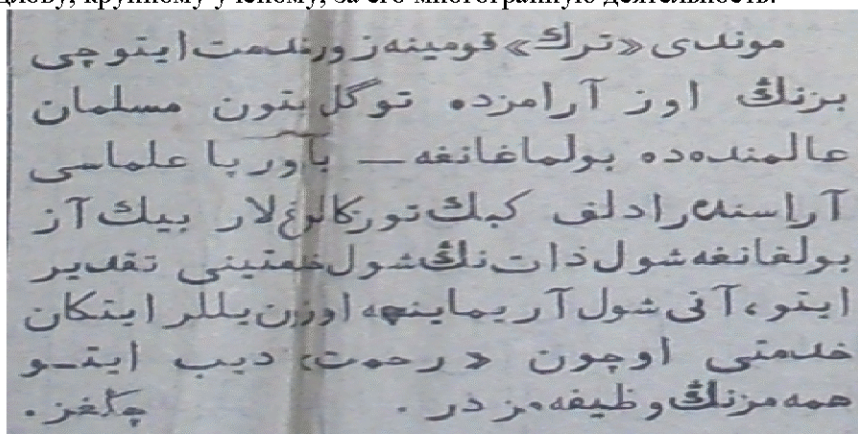 длову, крупному ученому, за его многогранную деятельность.
موندی «ترك» قومینه زور خدمت ایتوچی
بزنڭ اوز آرامزده توگل بتون مسلمان
عالمنده‌ده بولماغانغه — یاوروپا علماسی
آراسنده رادلف كبك تورکالوغ لار بیك آز
بولغانغه شول ذات نڭ شول خدمتینی تقدیر
ایتو، آنی شول آریماینچه اوزن یللر ایتکان
خدمتی اوچون «رحمت» دیب ایتو
همه مزنڭ وظیفه مز در . چڭغز.